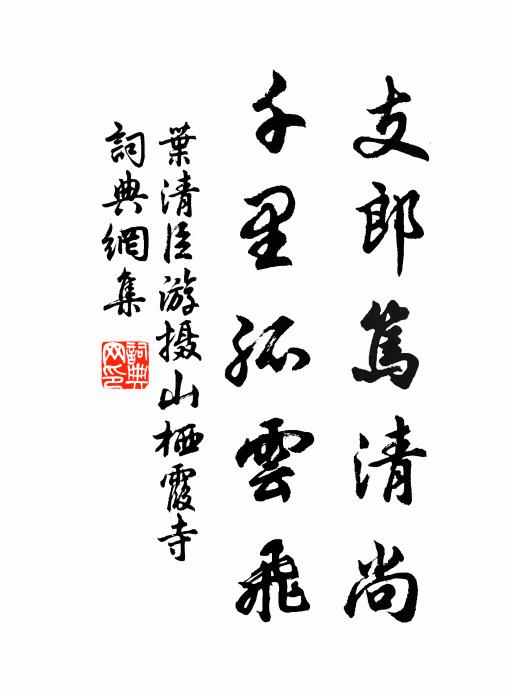 支郎篤清尚
千里孤雲飛
葉清臣游摄山栖霞寺
詞典網集
詞典网印